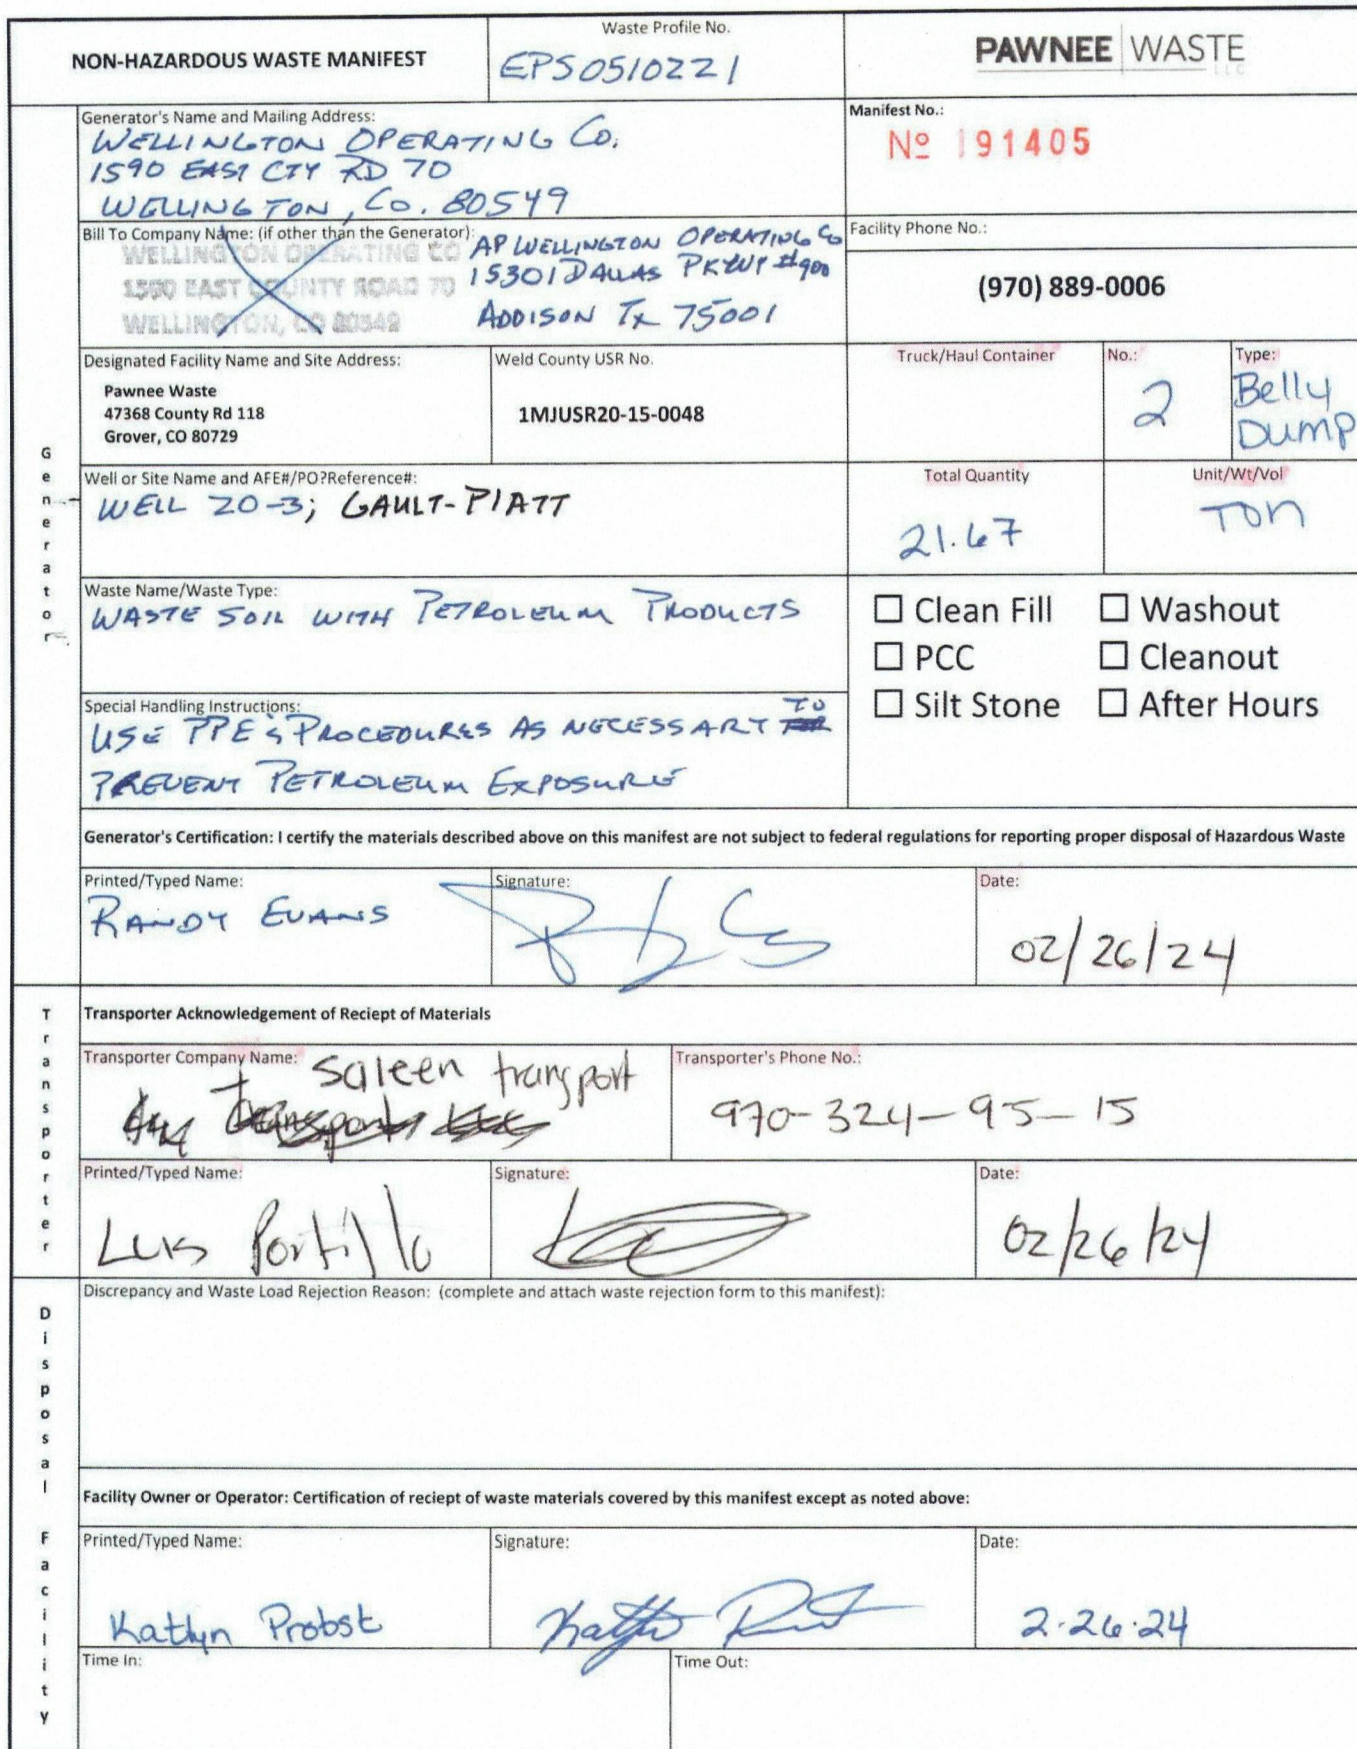 NON-HAZARDOUS WASTE MANIFEST
Waste Profile No.
EPS0510221
PAWNEE WASTE
LLC
Generator's Name and Mailing Address:
WELLINGTON OPERATING CO.
1590 EAST CTY RD 70
WELLINGTON, CO. 80549
Manifest No.:
Nº 191405
Bill To Company Name: (if other than the Generator):
WELLINGTON OPERATING CO
1590 EAST COUNTY ROAD 70
WELLINGTON, CO 80549
AP WELLINGTON OPERATING CO
15301 DALLAS PKWY #900
ADDISON TX 75001
Facility Phone No.:
(970) 889-0006
Designated Facility Name and Site Address:
Pawnee Waste
47368 County Rd 118
Grover, CO 80729
Weld County USR No.
1MJUSR20-15-0048
Truck/Haul Container
No.:
2
Type:
Belly
DUMP
Well or Site Name and AFE#/PO?Reference#:
WELL 20-3; GAULT-PIATT
Total Quantity
21.67
Unit/Wt/Vol
TON
Waste Name/Waste Type:
WASTE SOIL WITH PETROLEUM PRODUCTS
☐ Clean Fill ☐ Washout
☐ PCC ☐ Cleanout
☐ Silt Stone ☐ After Hours
Special Handling Instructions:
USE PPE & PROCEDURES AS NECESSARY TO
PREVENT PETROLEUM EXPOSURE
Generator's Certification: I certify the materials described above on this manifest are not subject to federal regulations for reporting proper disposal of Hazardous Waste
Printed/Typed Name:
RANDY EVANS
Signature:
Date:
02/26/24
Generator
Transporter Acknowledgement of Reciept of Materials
Transporter Company Name:
saleen transport
Transporter's Phone No.:
970-324-95-15
Printed/Typed Name:
Luis Portillo
Signature:
Date:
02/26/24
Transporter
Discrepancy and Waste Load Rejection Reason: (complete and attach waste rejection form to this manifest):
Facility Owner or Operator: Certification of reciept of waste materials covered by this manifest except as noted above:
Printed/Typed Name:
Katlyn Probst
Signature:
Date:
2.26.24
Time In:
Time Out:
Disposal Facility